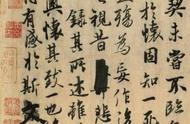 契未嘗不臨
於懷固知一
殤為妄作後
視昔
錄其所述雖
興懷其致一也
有感於斯文